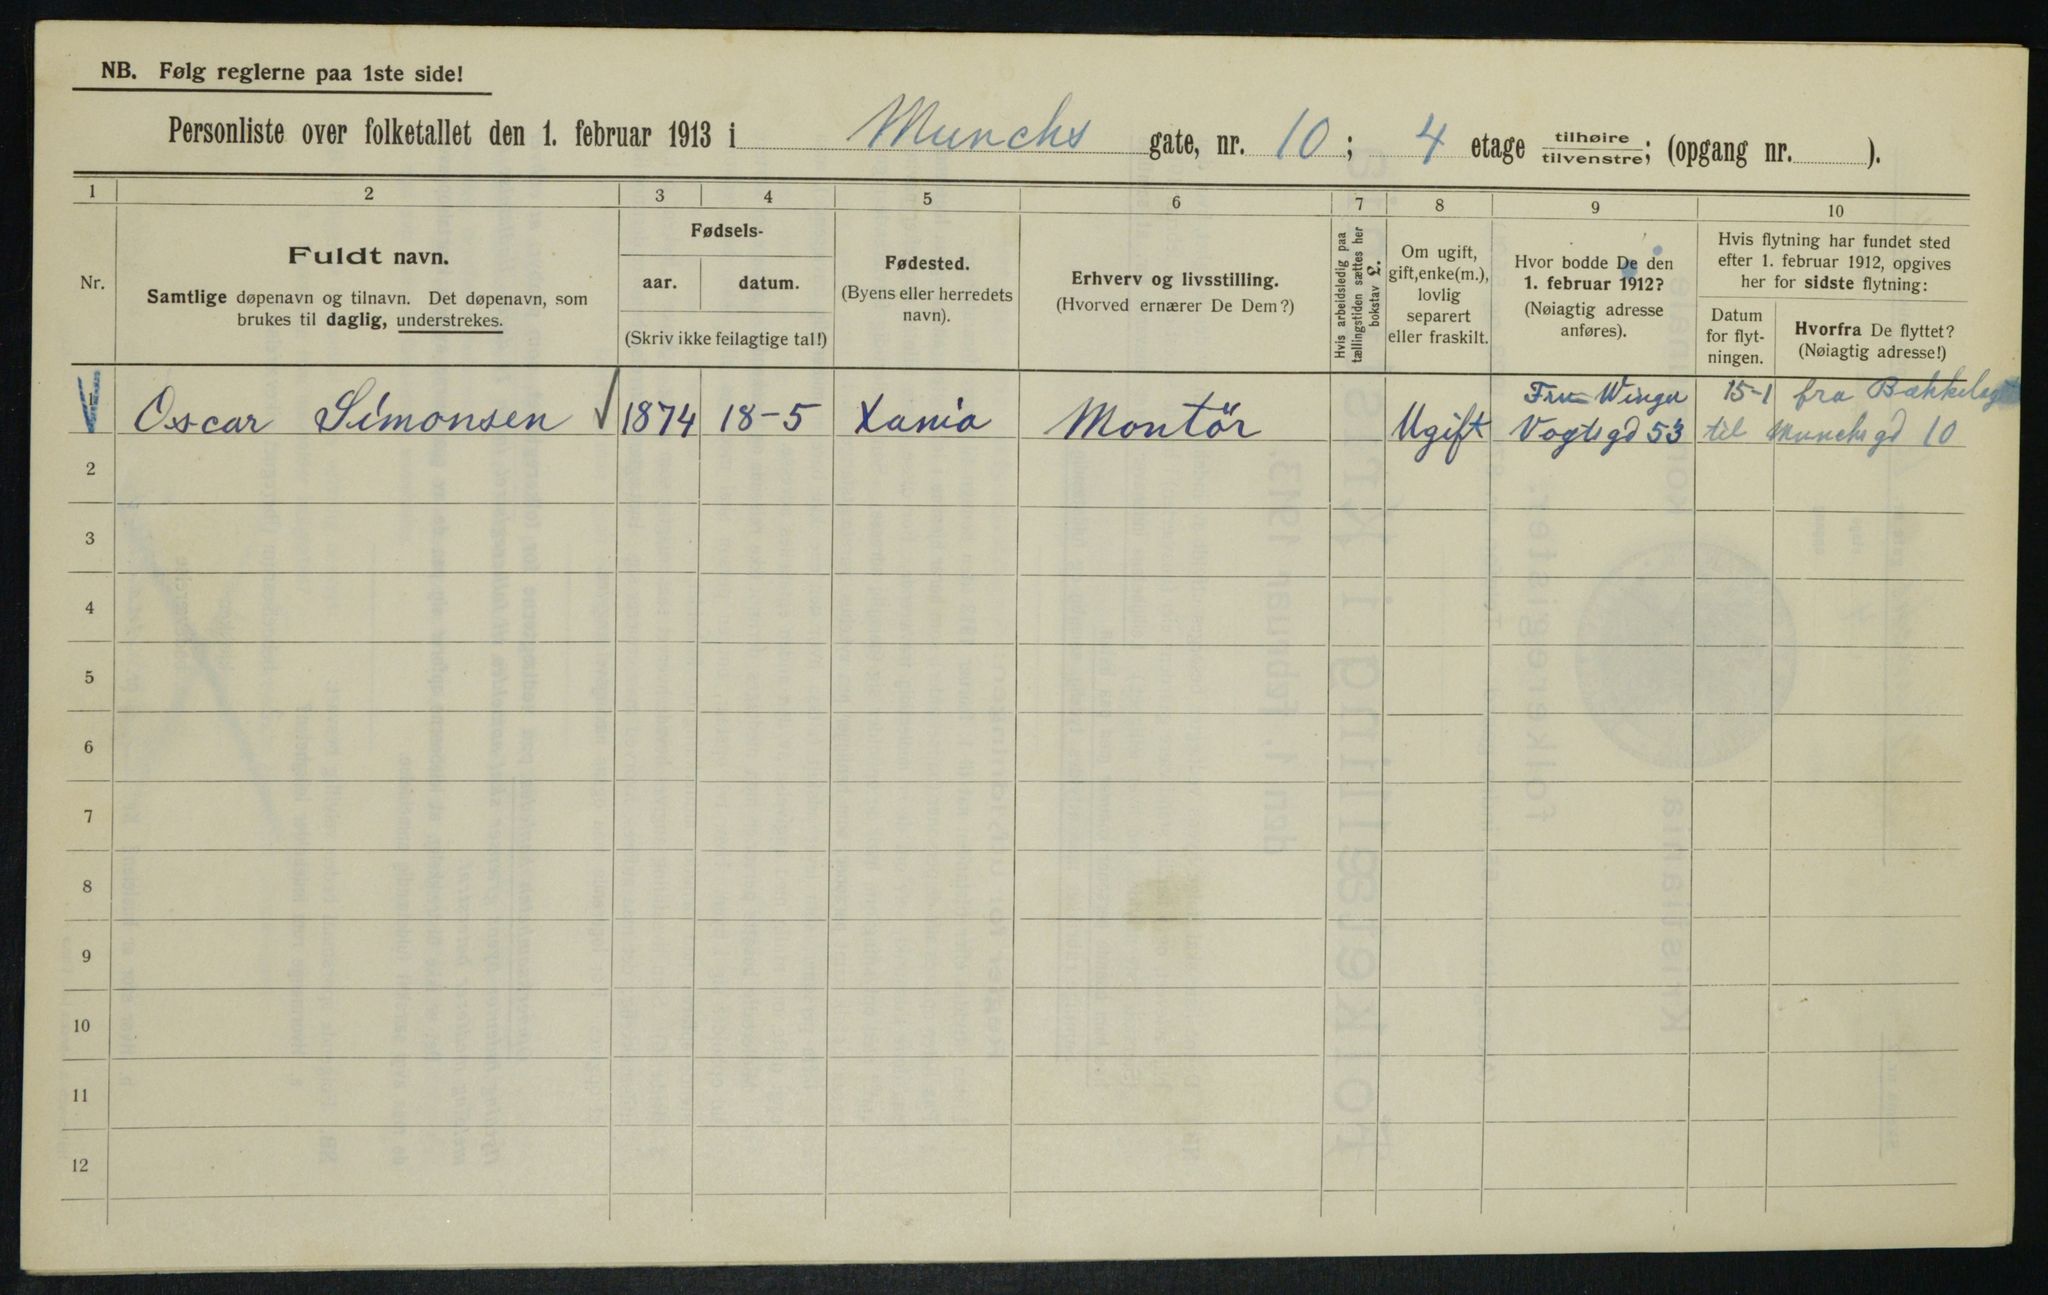 NB. Følg reglerne paa 1ste side!
Personliste over folketallet den 1. februar 1913 i Munchs gate, nr. 10; 4 etage tilhøire tilvenstre; (opgang nr. ).
1 2 3 4 5 6 7 8 9 10
Nr.
Fuldt navn.
Samtlige døpenavn og tilnavn. Det døpenavn, som
brukes til daglig, understrekes.
Fødsels-
aar. datum.
(Skriv ikke feilagtige tal!)
Fødested.
(Byens eller herredets
navn).
Erhverv og livsstilling.
(Hvorved ernærer De Dem?)
Hvis arbeidsledig paa
tællingstiden sættes her
bokstav L.
Om ugift,
gift, enke(m.),
lovlig
separert
eller fraskilt.
Hvor bodde De den
1. februar 1912?
(Nøiagtig adresse
anføres).
Hvis flytning har fundet sted
efter 1. februar 1912, opgives
her for sidste flytning:
Datum
for flyt-
ningen.
Hvorfra De flyttet?
(Nøiagtig adresse!)
Fru Winger 15-1 fra
1 Oscar Simonsen 1874 18-5 Xania Montör Ugift Vogtsgd 53 til Munchsgd 10
2
3
4
5
6
7
8
9
10
11
12